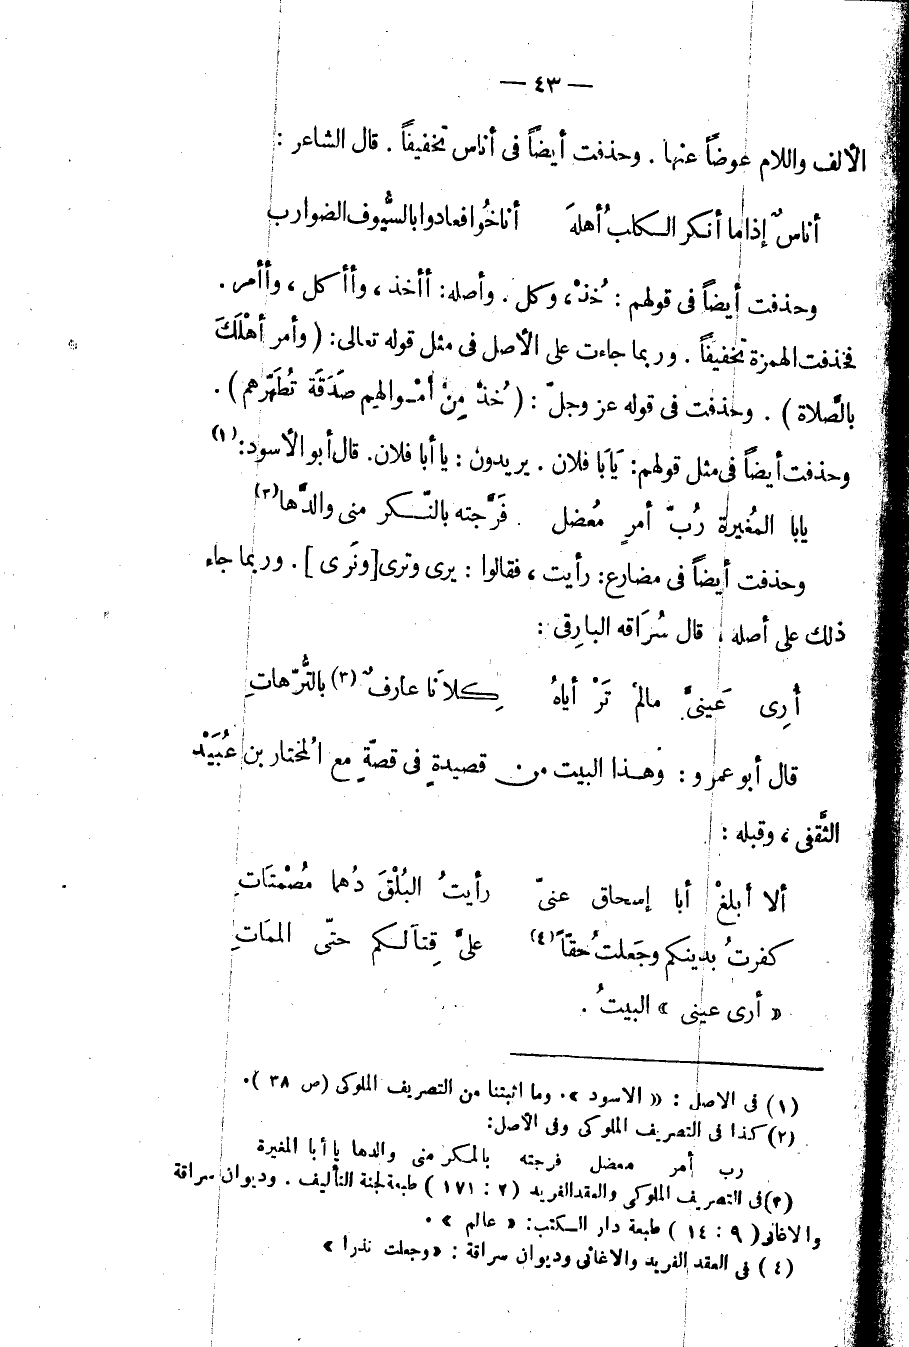 — ٤٣ —
الألف واللام عوضاً عنها . وحذفت أيضاً فى أناس تخفيفاً . قال الشاعر :
أناسٌ إذا ما أنكر الكلبُ أهلهَ أناخُوا فعادوا بالسيُّوف الضوارب
وحذفت أيضاً فى قولهم : خُذْ ، وكل . وأصله : أأخذ ، وأأكل ، وأأمر .
فحذفت الهمزة تخفيفاً . وربما جاءت على الأصل فى مثل قوله تعالى : ( وأمر أهْلَكَ
بالصَّلاة ) . وحذفت فى قوله عز وجلّ : ( خُذْ مِنْ أمْوالهِم صَدَقَة تُطَهّرهم ) .
وحذفت أيضاً فى مثل قولهم : يَابَا فلان . يريدون : يا أبا فلان. قال أبو الأسود : (١)
يابا المُغيرة رُبّ أمرٍ مُعضل فَرَّجته بالنّكر منى والدَّها (٢)
وحذفت أيضاً فى مضارع : رأيت ، فقالوا : يرى وترى [ ونَرى ] . وربما جاء
ذلك على أصله ، قال سُرَاقه البارقِى :
أرِى عَينىَّ مالمْ تَرْ أياهُ كِلاَنا عارفٌ (٣) بالتُّرّهاتِ
قال أبو عمرو : وهذا البيت من قصيدةٍ فى قصّةٍ مع المُختار بن عُبَيْد
الثَّقفى ، وقبله :
ألا أبلغْ أبا إسحاق عنىّ رأيتُ البُلْقَ دُهما مُصْمتَاتِ
كفرتُ بدينكم وجَعلتُ حقّاً (٤) علىَّ قِتاَلكم حتّى الممَاتِ
« أرى عينى » البيتُ .
(١) فى الاصل : « الاسود ». وما اثبتنا من التصريف الملوكى (ص ٣٨ ).
(٢) كذا فى التصريف الملوكى وفى الأصل :
رب أمر معضل فرجته بالمكر منى والدها يا أبا المغيرة
(٣) فى التصريف الملوكى والعقد الفريد (٢ : ١٧١ ) طبعة لجنة التأليف . وديوان سراقة
والاغانى ( ٩ : ١٤ ) طبعة دار الكتب : « عالم » .
(٤) فى العقد الفريد والاغانى وديوان سراقة : « وجعلت نذرا »